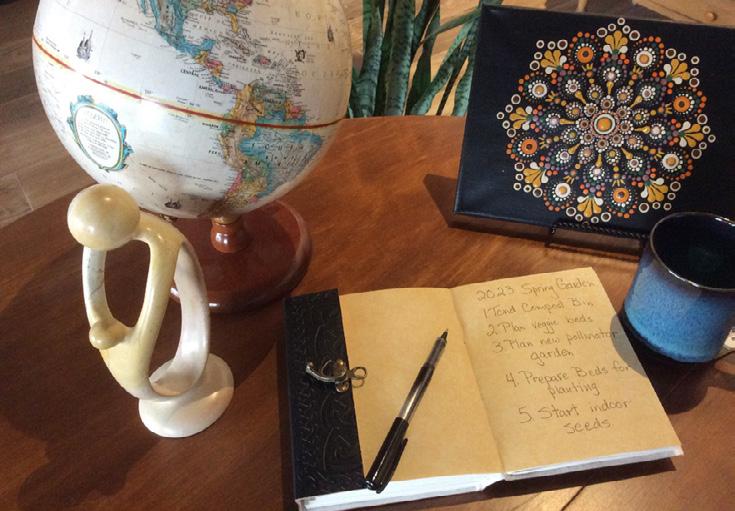 2023 Spring Garden
1. Tend Compost Bin
2. Plan veggie beds
3. Plan new pollinator
garden
4. Prepare Beds for
planting
5. Start indoor
seeds